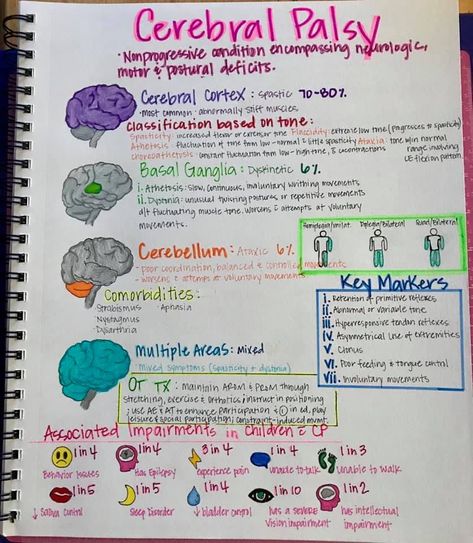 Cerebral Palsy
• Nonprogressive condition encompassing neurologic,
motor & postural deficits.
Cerebral Cortex: Spastic 70-80%
• Most common: abnormally stiff muscles
Classification based on tone:
Spasticity: increased flexor or extensor tone Flaccidity: extreme low tone (progresses to spasticity)
Athetosis: fluctuation of tone from low-normal & little spasticity Ataxia: tone w/in normal
choreoathetosis: constant fluctuation from low-high tone, & cocontractions range involving
UE flexion pattern
Basal Ganglia: Dyskinetic 6%
i. Athetosis: slow, continuous, involuntary writhing movements
ii. Dystonia: unusual twisting postures or repetitive movements
d/t fluctuating muscle tone. Worsens c̄ attempts at voluntary
movements.
Hemiplegia/Unilat. Diplegia/Bilateral Quad/Bilateral
Cerebellum: Ataxic 6%
- poor coordination, balanced & controlled movements
- worsens c̄ attempts at voluntary movements
Comorbidities:
- Strabismus - Aphasia
- Nystagmus
- Dysarthria
Key Markers
i. Retention of primitive reflexes
ii. Abnormal or variable tone
iii. Hyperresponsive tendon reflexes
iv. Asymmetrical use of extremities
v. Clonus
vi. Poor feeding & tongue control
vii. Involuntary movements
Multiple Areas: Mixed
Mixed symptoms (spasticity & dystonia)
OT TX: maintain AROM & PROM through
stretching, exercise & orthotics; instruct in positioning
; use AE & AT to enhance participation in ed, play
leisure & social participation; constraint-induced mvmt.
Associated Impairments in Children c̄ CP
1 in 4
Behavior Issues
1 in 4
Has Epilepsy
3 in 4
experience pain
1 in 4
unable to talk
1 in 3
unable to walk
1 in 5
↓ Saliva Control
1 in 5
Sleep Disorder
1 in 4
↓ bladder control
1 in 10
has a severe
vision impairment
1 in 2
has intellectual
impairment